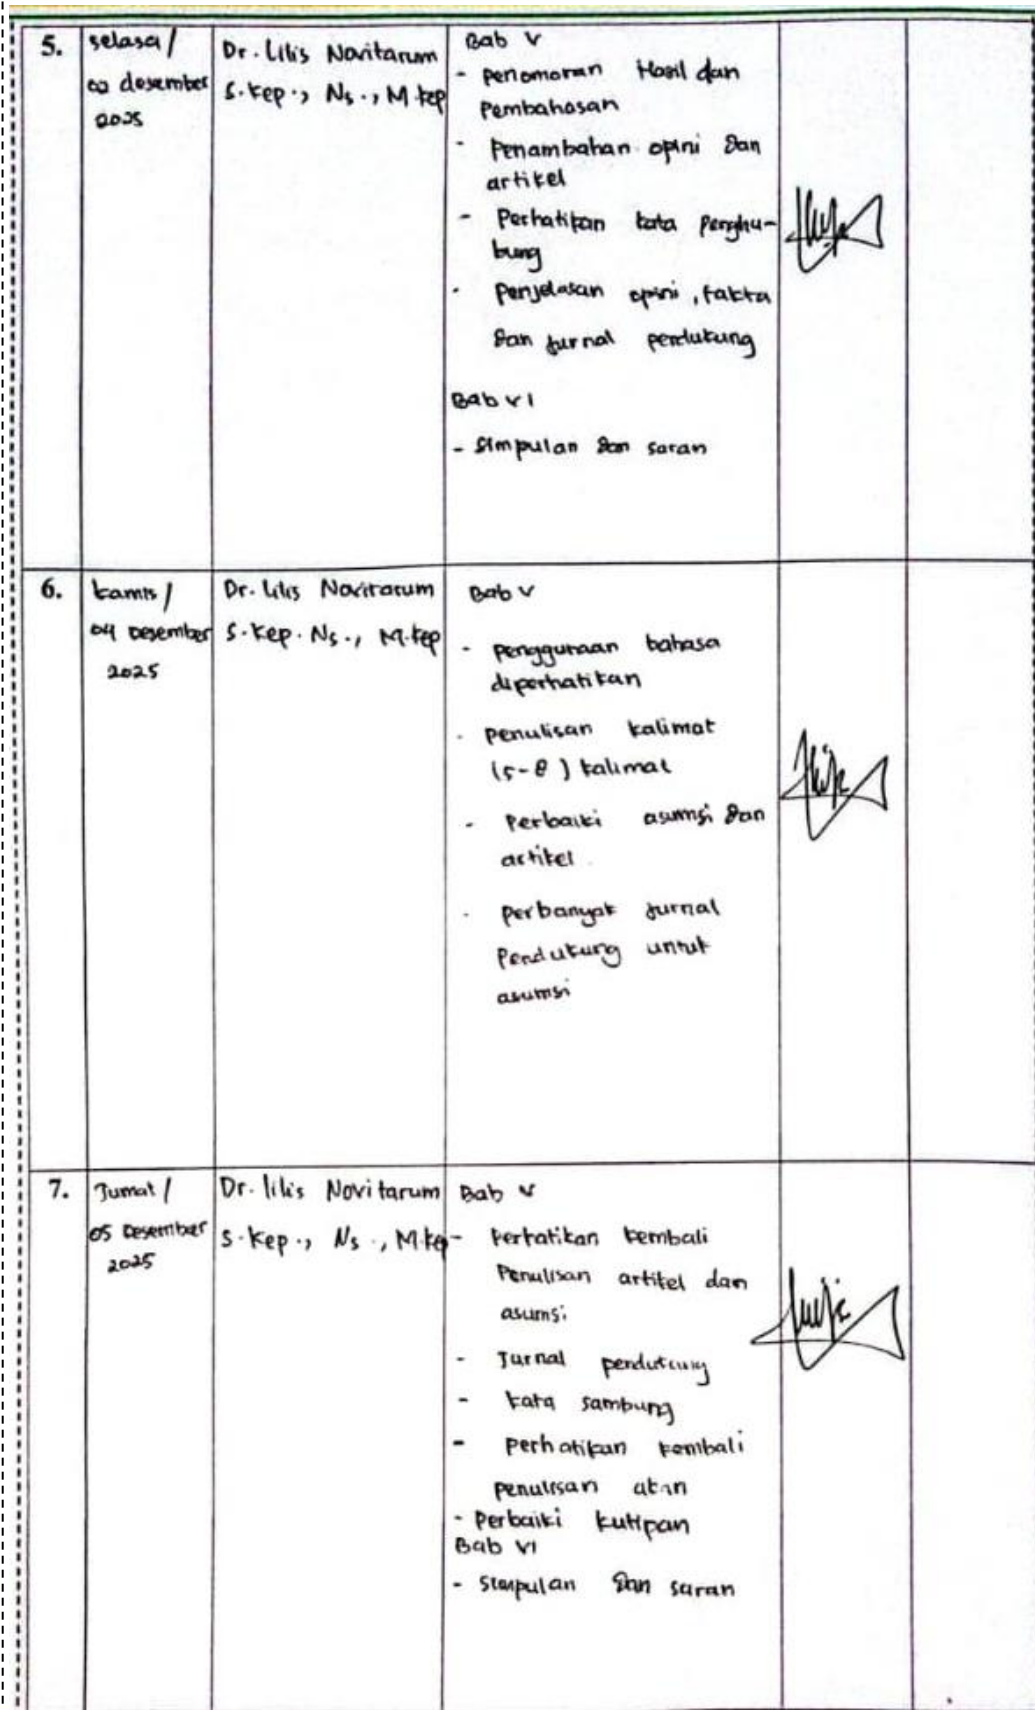 5.
selasa /
02 desember
2025
Dr. Lilis Novitarum
S.Kep., Ns., M.Kep
Bab V
- Penomoran Hasil dan
Pembahasan
- Penambahan opini dan
artikel
- Perhatikan kata penghu-
bung
- Penjelasan opini, fakta
dan jurnal pendukung
Bab VI
- Simpulan dan saran
6.
kamis /
04 Desember
2025
Dr. Lilis Novitarum
S.Kep. Ns., M.Kep
Bab V
- penggunaan bahasa
diperhatikan
- penulisan kalimat
(5-8) kalimat
- Perbaiki asumsi dan
artikel.
- perbanyak jurnal
Pendukung untuk
asumsi
7.
Jumat /
05 Desember
2025
Dr. lilis Novitarum
S.Kep., Ns., M.Kep
Bab V
- Perhatikan kembali
Penulisan artikel dan
asumsi
- Jurnal pendukung
- kata sambung
- perhatikan kembali
penulisan
- Perbaiki kutipan
Bab VI
- Simpulan dan saran